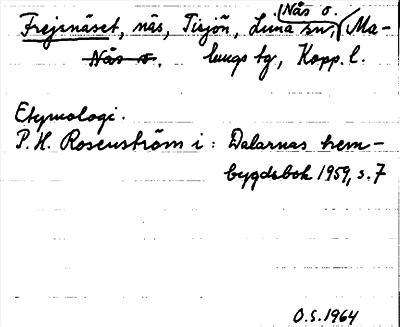 Nås o.
Frejsnäset, näs, Tisjön, Lima sn, Ma-
Nås o. lungs tg, Kopp. l.
Etymologi.
P.H. Rosenström i: Dalarnas hem-
bygdsbok 1959, s. 7
O.S. 1964